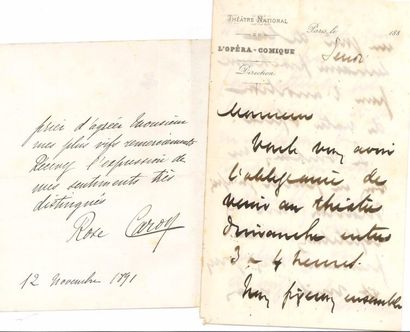 prier d'agréer Monsieur
mes plus vifs remerciements
l'expression de
mes sentiments très
distingués
Rose Caron
12 novembre 1891
THÉÂTRE NATIONAL
DE
L'OPÉRA-COMIQUE
Direction
Paris, le 188
Jeudi
Monsieur
Voulez vous avoir
l'obligeance de
venir au théâtre
dimanche entre
3 & 4 heures.
Nous ensemble